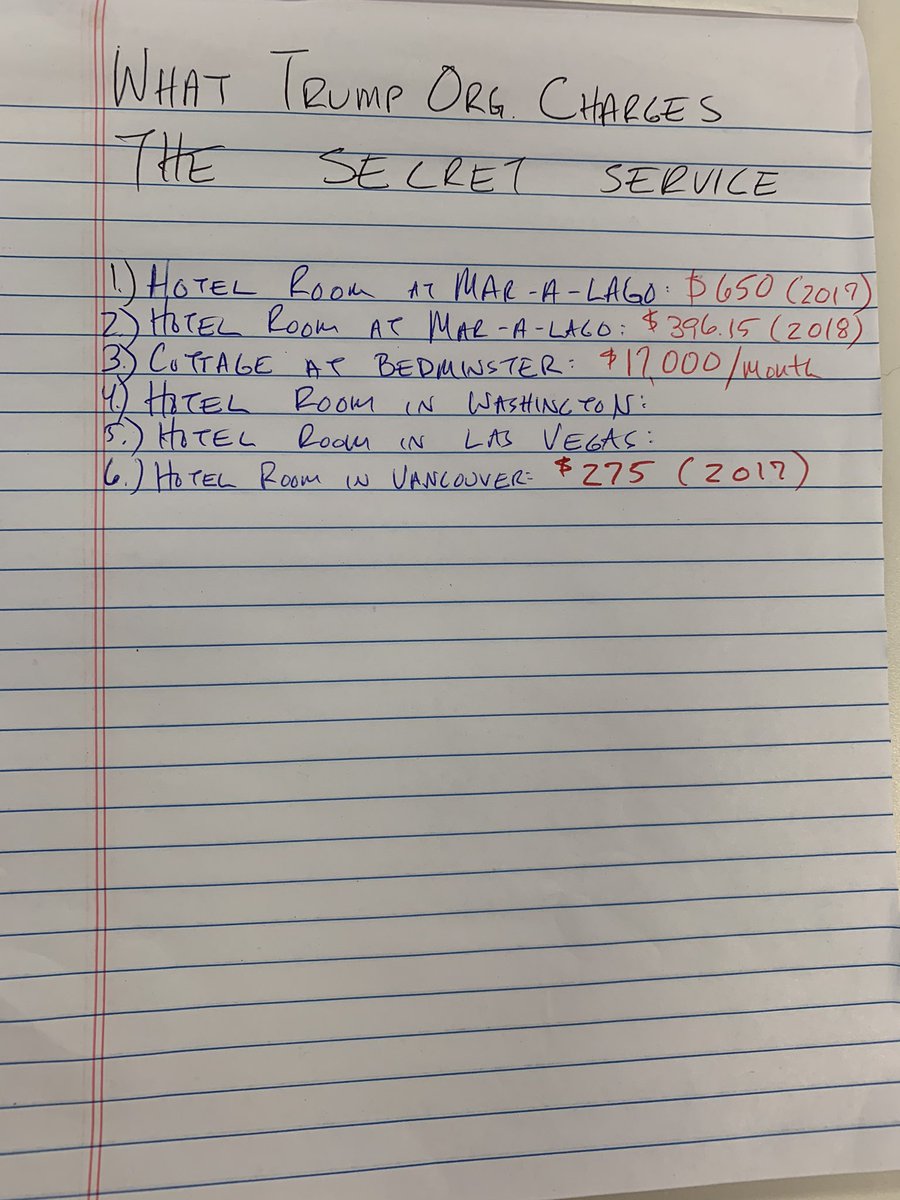 WHAT TRUMP ORG. CHARGES
THE SECRET SERVICE
1.) HOTEL ROOM AT MAR-A-LAGO: $650 (2017)
2.) HOTEL ROOM AT MAR-A-LAGO: $396.15 (2018)
3.) COTTAGE AT BEDMINSTER: $17,000/month
4.) HOTEL ROOM IN WASHINGTON:
5.) HOTEL ROOM IN LAS VEGAS:
6.) HOTEL ROOM IN VANCOUVER: $275 (2017)